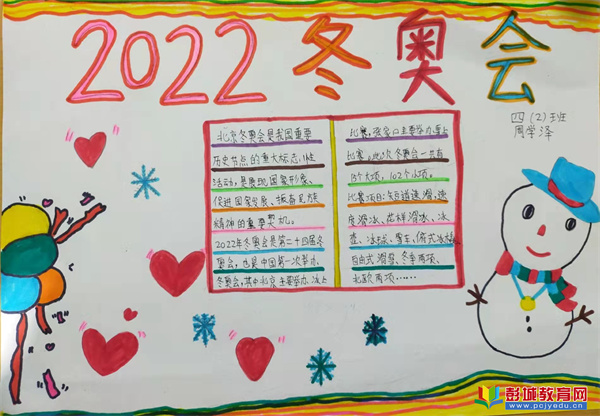 2022冬奥会
四(2)班
周学泽
北京冬奥会是我国重要
历史节点的重大标志性
活动,是展现国家形象、
促进国家发展、振奋民族
精神的重要契机。
2022年冬奥会是第二十四届冬
奥会,也是中国第一次举办
冬奥会,其中北京主要举办冰上
比赛,张家口主要举办雪上
比赛。此次冬奥会一共有
15个大项,102个小项。
比赛项目:短道速滑、速
度滑冰、花样滑冰、冰
壶、冰球、雪车、俯式冰橇
自由式滑雪、冬季两项、
北欧两项……
彭城教育网
www.pcjyedu.cn